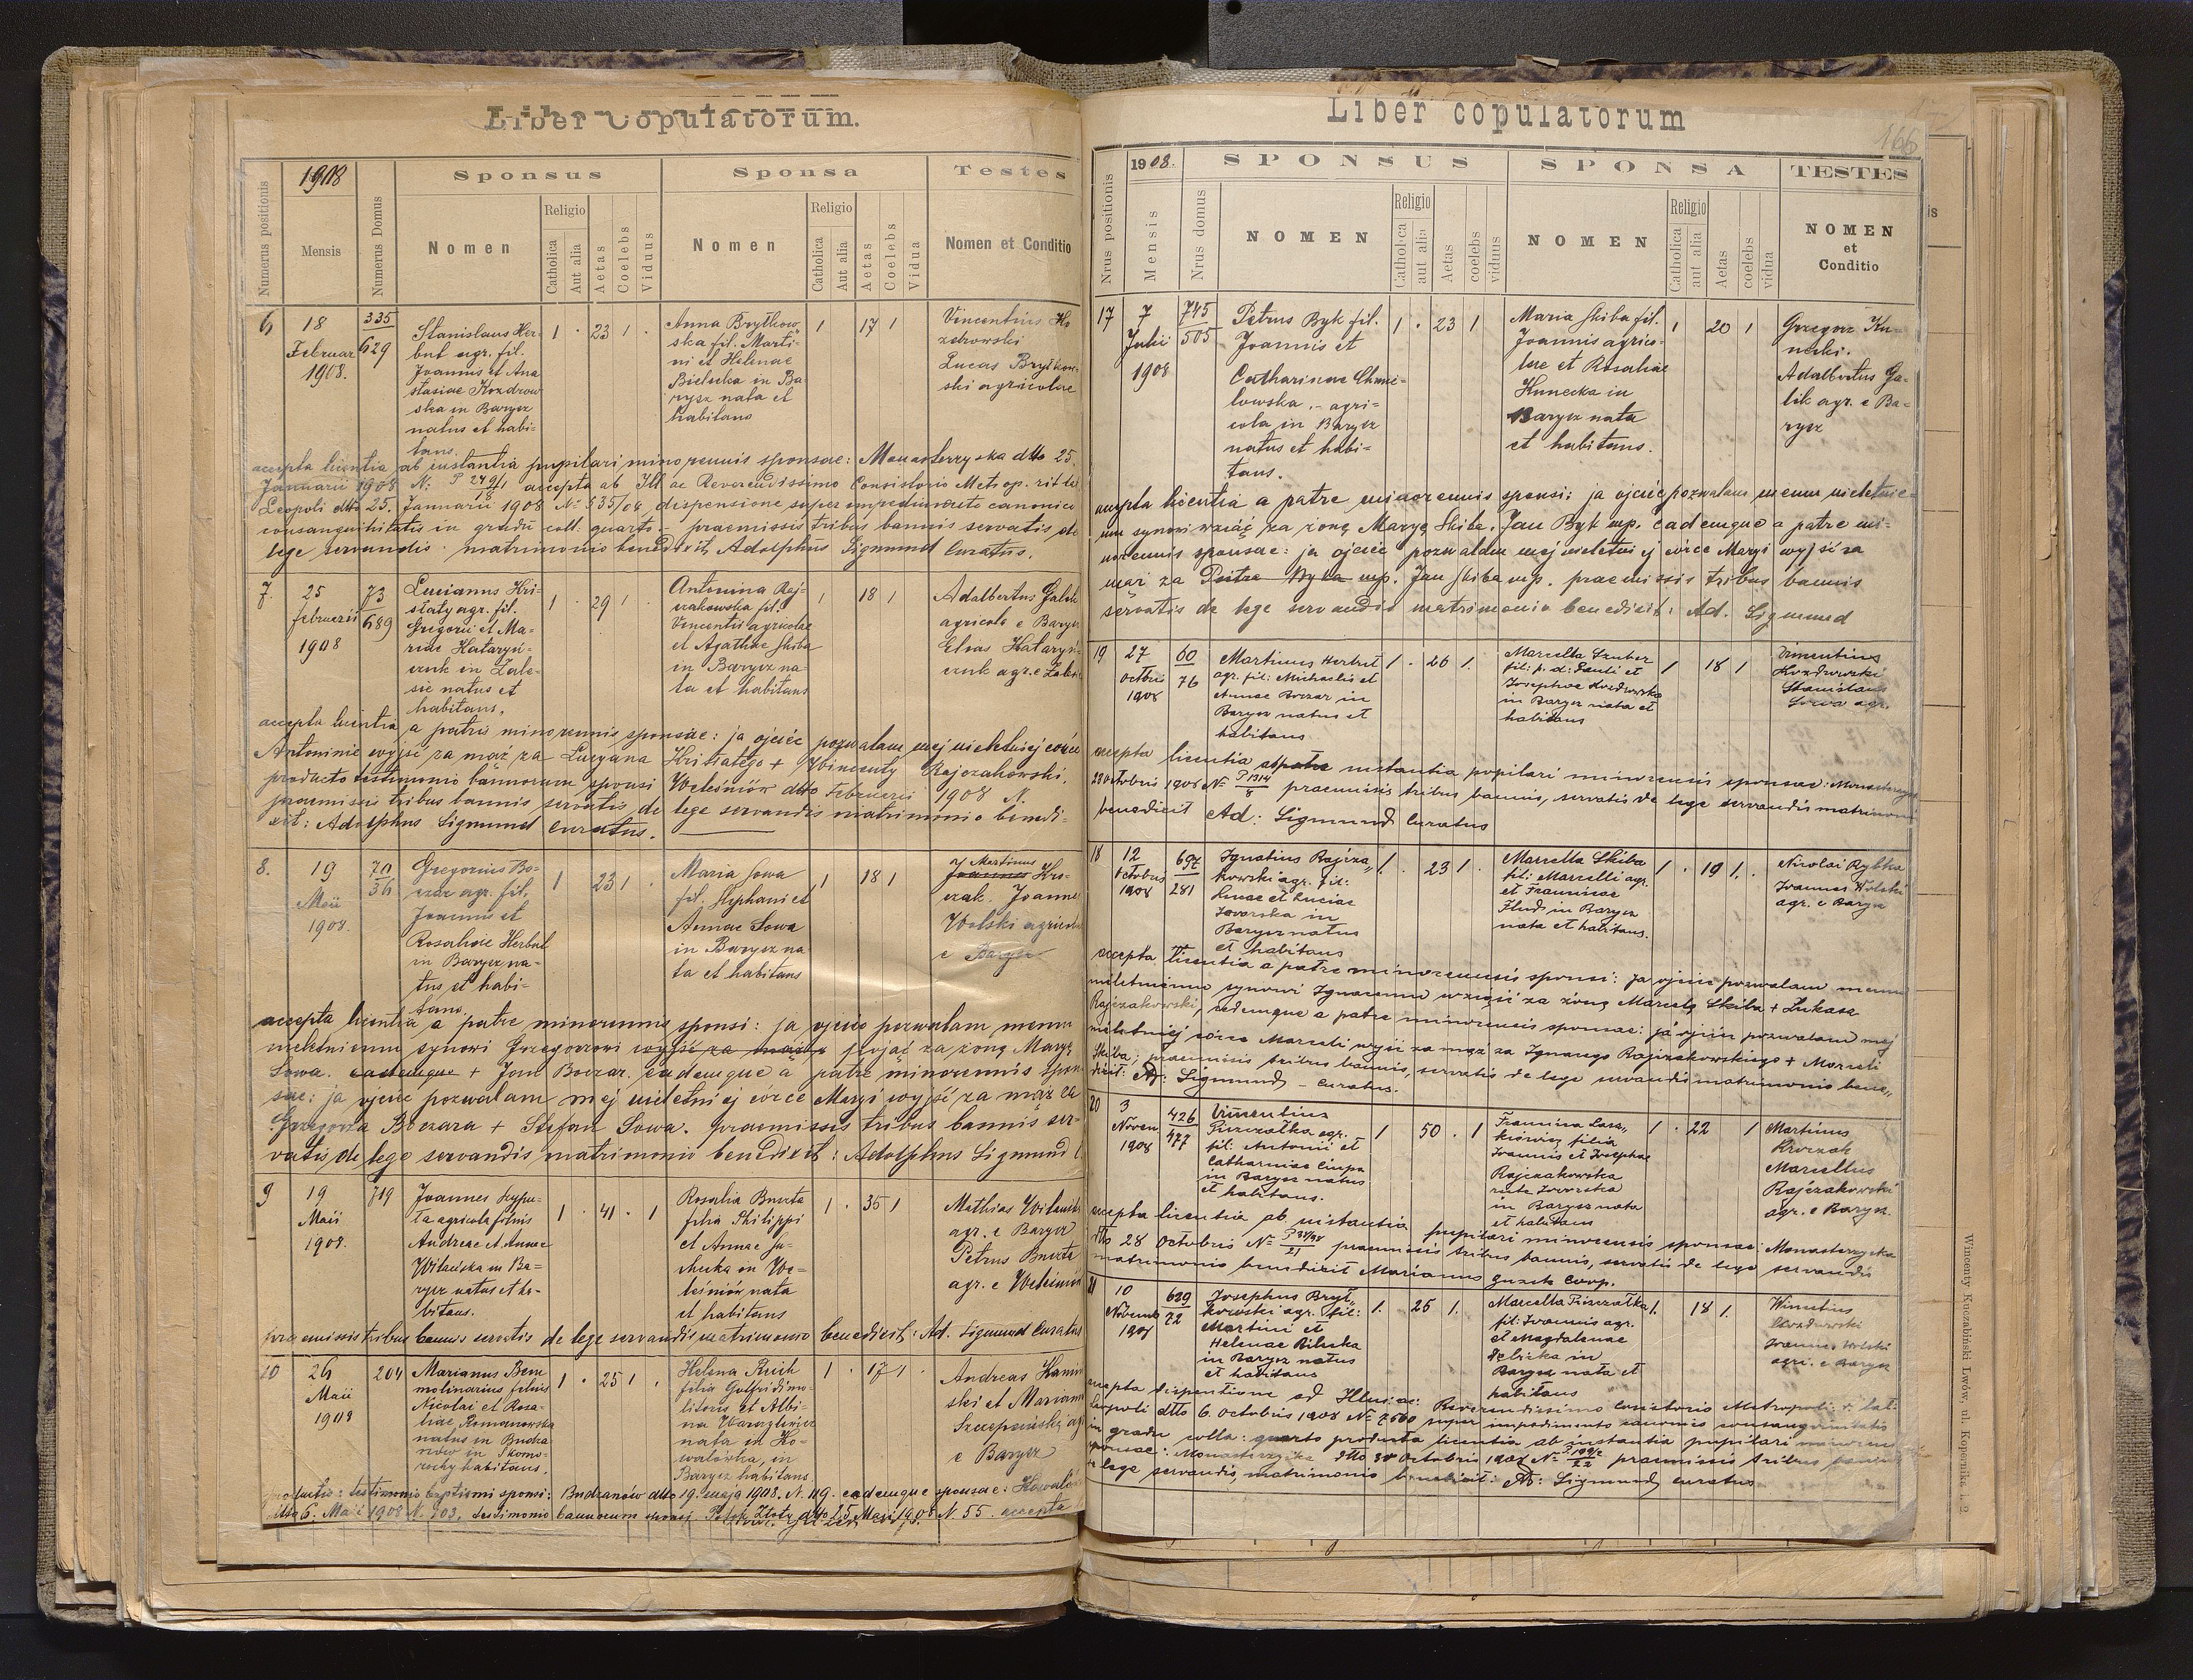 Liber Copulatorum.
1908
Sponsus
Sponsa
Testes
Numerus positionis
Mensis
Numerus Domus
Nomen
Religio
Catholica
Aut alia
Aetas
Coelebs
Viduus
Nomen
Religio
Catholica
Aut alia
Aetas
Coelebs
Vidua
Nomen et Conditio
6
18
Februar
1908.
335
629
Stanislaus Her-
but agr. fil.
Joannis et Ana
stasiae Kozdrow
ska in Barysz
natus et habi-
tans.
1 . 23 1 .
Anna Brytkow-
ska fil. Marti-
ni et Helenae
Bielecka in Ba-
rysz nata et
habitans
1 17 1
Vincentius Ko
zdrowski
Lucas Brytkow-
ski agricolae
accepta licentia ab instantia pupilari minorennis sponsae: Monasterzyska dtto 25.
Januarii 1908 N: accepta ab Ill ac Reverendissimo Consistorio Metrop. rit. la
Leopoli dtto 25. Januarii 1908 N: 535/08 dispensione super impedimento canonico
consanguinitatis in gradu coll. quarto - praemissis tribus bannis servatis de
lege servandis matrimonio benedixit Adolphus Sigmund Curatus.
7.
25
februarii
1908
73
689
Lucianus Hri-
staty agr. fil.
Gregorii et Ma-
riae Kataryń-
czuk in Zale-
sie natus et
habitans.
1 . 29 1
Antonina Raj-
czakowska fil.
Vincentii agricolae
et Agathae Skiba
in Barysz na-
ta et habitans
1 18 1
Adalbertus Galik
agricola e Barysz
Elias Kataryń-
czuk agr. e Zalesie
accepta licentia a patris minorennis sponsae: ja ojciec pozwalam mej nieletniej córce
Antoninie wyjść za mąż za Lucyana Hristatego + Wincenty Rajczakowski,
producto testimonio bannorum sponsi Weleśniów dtto februarii 1908 N.
praemissis tribus bannis servatis de lege servandis matrimonio benedi-
xit: Adolphus Sigmund Curatus.
8.
19
Maii
1908.
70
36
Gregorius Bo-
czar agr. fil.
Joannis et
Rosaliae Herbut
in Barysz na-
tus et habi-
tans
1 23 1 .
Maria Sowa
fil. Stephani et
Annae Sowa
in Barysz na
ta et habitans
1 18 1
Martinus
Joannes Kro-
czak. Joannes
Wolski agricola
e Barysz
accepta licentia a patre minorennis sponsi: ja ojciec pozwalam memu
nieletniemu synowi Grzegorzowi wyjść za mąż pojąć za żonę Maryę
Sowa. eademque + Jan Boczar. eademque a patre minorennis spon
sae: ja ojciec pozwalam mej nieletniej córce Maryi wyjść za mąż za
Grzegorza Boczara + Stefan Sowa. praemissis tribus bannis ser-
vatis de lege servandis matrimonio benedixit: Adolphus Sigmund
9
19
Maii
1908.
719
Joannes
agricola filius
Andreae et Annae
Wilańska in Ba-
rysz natus et ha-
bitans.
1 . 41 . 1
Rosalia Buszta
filia Philippi
et Annae
in We-
leśniów nata
et habitans
1 . 35 1
Mathias
agr. e Barysz
Petrus Buszta
agr. e Weleśniów
praemissis tribus bannis servatis de lege servandis matrimonio benedixit: Ad. Sigmund Curatus
10
26
Maii
1908
204
Marianus Bem
molinarius filius
Nicolai et Rosa-
liae Romanowska
natus in Budza
nów in Skomo-
rochy habitans.
1 . 25 1 .
Helena Reich
filia Gotfridi mo-
litoris et Albi-
na
nata in Ko-
walówka, in
Barysz habitans
1 . 17 1 .
Andreas Kamin
ski et Marianus
Szczepański agr
e Barysz
testimonio baptismi sponsi: Budzanów dtto 19. maja 1908. N. 119. eademque sponsae: Kowalów
dtto 6. Maii 1908 N. 703. testimonio bannorum sponsi Potok Złoty dtto 25 Maii 1908 N. 55. accepta
Liber copulatorum
166
1908.
SPONSUS
SPONSA
TESTES
Nrus positionis
Mensis
Nrus domus
NOMEN
Religio
Catholica
aut alia
Aetas
coelebs
viduus
NOMEN
Religio
Catholica
aut alia
Aetas
coelebs
vidua
NOMEN
et
Conditio
17
7
Julii
1908
745
505
Petrus Byk fil.
Joannis et
Catharinae Chmie-
lowska .- agri-
cola in Barysz
natus et habi-
tans.
1 . 23 1
Maria Skiba fil.
Joannis agrico-
lae et Rosaliae
Kunecka in
Barysz nata
et habitans.
1 20 1
Grzegorz Ku-
necki.
Adalbertus Ga-
lik agr. e Ba-
rysz
accepta licentia a patre minorennis sponsi: ja ojciec pozwalam memu nieletnie-
mu synowi wziąć za żonę Maryę Skiba. Jan Byk mp. eademque a patre mi-
norennis sponsae: ja ojciec pozwalam mej nieletniej córce Maryi wyjść za
mąż za Piotra Byka mp. Jan Skiba mp. praemissis tribus bannis
servatis de lege servandis matrimonio benedixit: Ad. Sigmund
19
27
Octbris
1908
60
76
Martinus Herbut
agr. fil: Michaelis et
Annae Boczar in
Barysz natus et
habitans
1 . 26 1.
Marcella Szuber
fil: p. d: Pauli et
Josephae Kozdrowska
in Barysz nata et
habitans
1 18 1
Vincentius
Kozdrowski
Stanislaus
Sowa agr.
accepta licentia a patre instantia pupilari minorennis sponsae: Monasterzyska
23 octobris 1908 N: P 1314/8 praemissis tribus bannis, servatis de lege servandis matrimonio
benedixit Ad: Sigmund Curatus
18
12
Octobris
1908
697
281
Ignatius Rajcza-
kowski agr. fil:
Lucae et Luciae
Jaworska in
Barysz natus
et habitans
1. 23 1.
Marcella Skiba
fil: Marcelli agr.
et Franciscae
Flud in Barysz
nata et habitans.
1 . 19 1.
Nicolai Rybka
Joannes Wolski
agr. e Barysz
accepta licentia a patre minorennis sponsi: Ja ojciec pozwalam memu
nieletniemu synowi Ignacemu wziąść za żonę Marcelę Skiba + Łukasz
Rajczakowski, eademque a patre minorennis sponsae: ja ojciec pozwalam mej
nieletniej córce Marceli wyjść za mąż za Ignacego Rajczakowskiego + Marceli
Skiba; praemissis tribus bannis, servatis de lege servandis matrimonio bene-
dixit: Ad: Sigmund - curatus.
20
3
Novem
1908
426
477
Vincentius
Pieczatka agr.
fil. Antonii et
Catharinae
in Barysz natus
et habitans.
1 50 . 1
Francisca Łasz-
kiewicz filia
Joannis et Josephae
Rajczakowska
in Barysz nata
et habitans
1 . 22 1
Martinus
Kroczak
Marcellus
Rajczakowski
agr. e Barysz.
accepta licentia ab instantia pupilari minorennis sponsae: Monasterzyska
dtto 28 Octobris N: praemissis tribus bannis, servatis de lege servandis
matrimonio benedixit Marianus Coop.
21
10
Novembr
1908
629
72
Josephus Bryt-
kowski agr. fil:
Martini et
Helenae Bilecka
in Barysz natus
et habitans
1. 25 1.
Marcella Pieczatka
fil: Joannis agr.
et Magdalenae
in
Barysz nata et
habitans
1. 18 1.
Wincentius
Kozdrowski
Joannes Wolski
agri. e Barysz
accepta dispentione ad Illus: ac: Reverendissimo Consistorio Metropoli: r: lat:
Leopoli dtto 6. Octobris 1908 N: 7560 super impedimento canonis consanguinitatis
in gradu colla: quarto producta licentia ab instantia pupilari minorenn
sponsae: Monasterzyska dtto 30 Octobris 1908 N: praemissis tribus
de lege servandis, matrimonio benedixit: Ad: Sigmund curatus
Winnenty Kuczabiński Lwów, ul. Kopernika 1. 2.